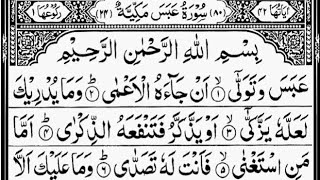 اٰیَاتُهَا ٤٢ (٨٠) سُوْرَةُ عَبَسَ مَكِّیَّةٌ (٢٤) رُكُوْعُهَا ١
بِسْمِ اللّٰهِ الرَّحْمٰنِ الرَّحِیْمِ
عَبَسَ وَتَوَلّٰۤی ۙ﴿۱﴾ اَنْ جَآءَهُ الْاَعْمٰی ؕ﴿۲﴾ وَمَا یُدْرِیْكَ
لَعَلَّهٗ یَزَّكّٰۤی ۙ﴿۳﴾ اَوْ یَذَّكَّرُ فَتَنْفَعَهُ الذِّكْرٰی ؕ﴿۴﴾ اَمَّا
مَنِ اسْتَغْنٰی ۙ﴿۵﴾ فَاَنْتَ لَهٗ تَصَدّٰی ؕ﴿۶﴾ وَمَا عَلَیْكَ اَلَّا